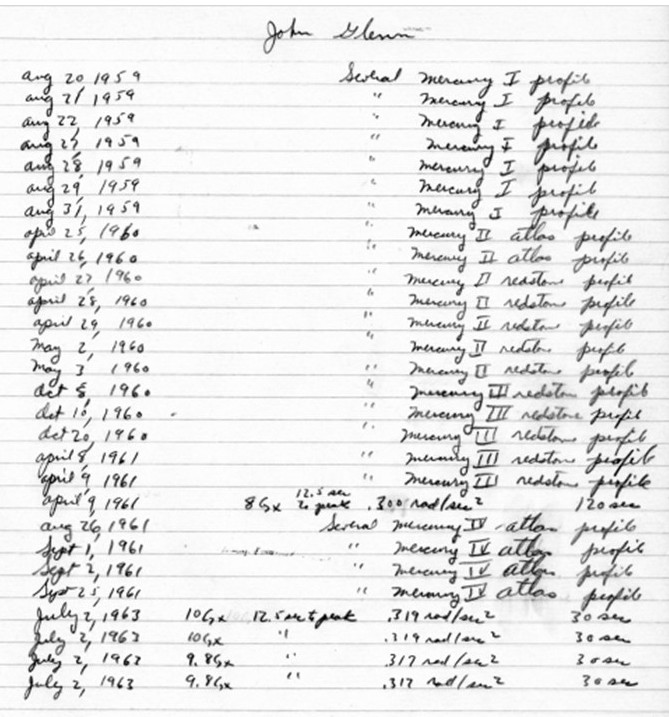 John Glenn
aug 20, 1959 Several mercury I profile
aug 21, 1959 " mercury I profile
aug 22, 1959 " mercury I profile
aug 27, 1959 " mercury I profile
aug 28, 1959 " mercury I profile
aug 29, 1959 " mercury I profile
aug 31, 1959 " mercury I profile
april 25, 1960 " mercury II atlas profile
april 26, 1960 " mercury II atlas profile
april 27 1960 mercury II redstone profile
april 28, 1960 " mercury II redstone profile
april 29, 1960 " mercury II redstone profile
may 2, 1960 mercury II redstone profile
may 3 1960 " mercury II redstone profile
Oct 5, 1960 " mercury III redstone profile
Oct 10, 1960 " mercury III redstone profile
Oct 20, 1960 " mercury III redstone profile
april 8, 1961 " mercury III redstone profile
april 9 1961 " mercury III redstone profile
april 9 1961 8 Gx 12.5 sec to peak .300 rad/sec² 120 sec
aug 26, 1961 Several mercury IV atlas profile
Sept 1, 1961 " mercury IV atlas profile
Sept 2, 1961 " mercury IV atlas profile
Sept 25, 1961 " mercury IV atlas profile
July 2, 1963 10 Gx 12.5 sec to peak .319 rad/sec² 30 sec
July 2, 1963 10 Gx " .319 rad/sec² 30 sec
July 2, 1963 9.8 Gx " .317 rad/sec² 30 sec
July 2, 1963 9.8 Gx " .317 rad/sec² 30 sec